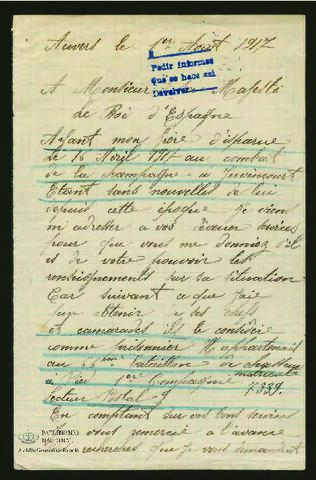 Auvers le 1er Août 1917
Pedir informes
Que se haos asi
Devolver
A Monsieur Sa Majesté
Le Roi d'Espagne
Ayant mon frère disparue
Le 16 Avril 1917 au combat
de la champagne a Juvincourt
Etant sans nouvelles de lui
depuis cette époque Je viens
m adresser a vos
pour que vous me donniez s'il
es de votre pouvoir les
renseignements sur sa situation
Car suivant a que j'aie
pu obtenir de ses chefs
et camarades ils le considère
comme prisonnier Il appartenait
au Bataillon de chasseur
a pied 1ere Compagnie matricule
Secteur Postal 9 7339.
En comptant sur vos bons services
Je vous remercie a l'avance
recherches que je vous demandent
PATRIMONIO
NACIONAL
Archivo General de Palacio